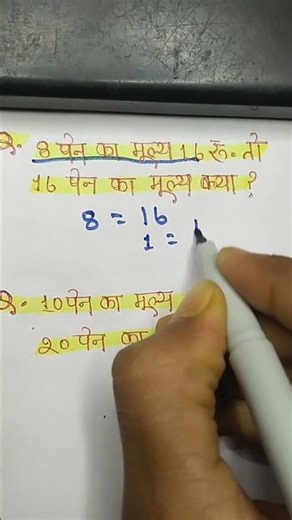 प्र. 8 पेन का मूल्य 16 रू. तो
16 पेन का मूल्य क्या ?
8 = 16
1 =
प्र. 10 पेन का मूल्य
20 पेन का